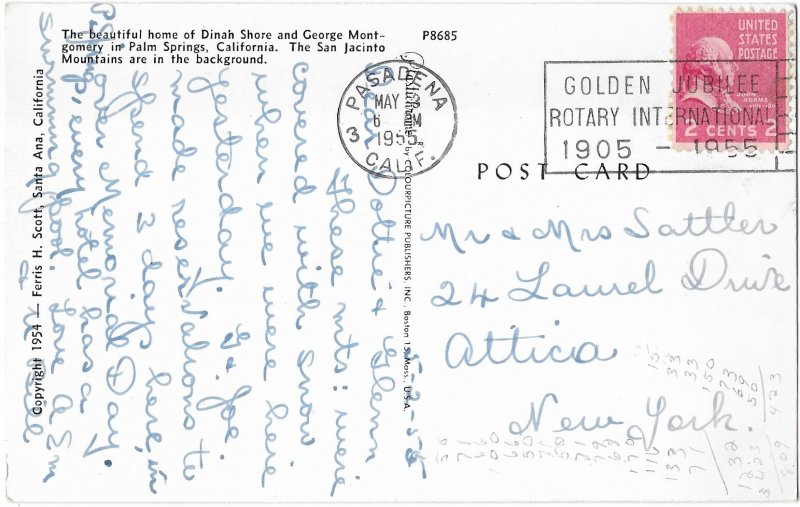 The beautiful home of Dinah Shore and George Mont-
gomery in Palm Springs, California. The San Jacinto
Mountains are in the background.
P8685
PASADENA
MAY
6 PM
1955
3 CALIF.
GOLDEN JUBILEE
ROTARY INTERNATIONAL
1905 - 1955
UNITED
STATES
POSTAGE
JOHN
ADAMS
2 CENTS 2
POST CARD
Mr & Mrs Sattler
24 Laurel Drive
Attica
New York.
by COLOURPICTURE PUBLISHERS, INC., Boston 15, Mass., U.S.A.
5-2-55
Dear Dottie & Glenn
These mts. were
covered with snow
when we were here
yesterday. Joe
made reservations to
spend 3 days here, in
over Memorial Day.
every hotel has a
swimming pool. Love
Copyright 1954 — Ferris H. Scott, Santa Ana, California